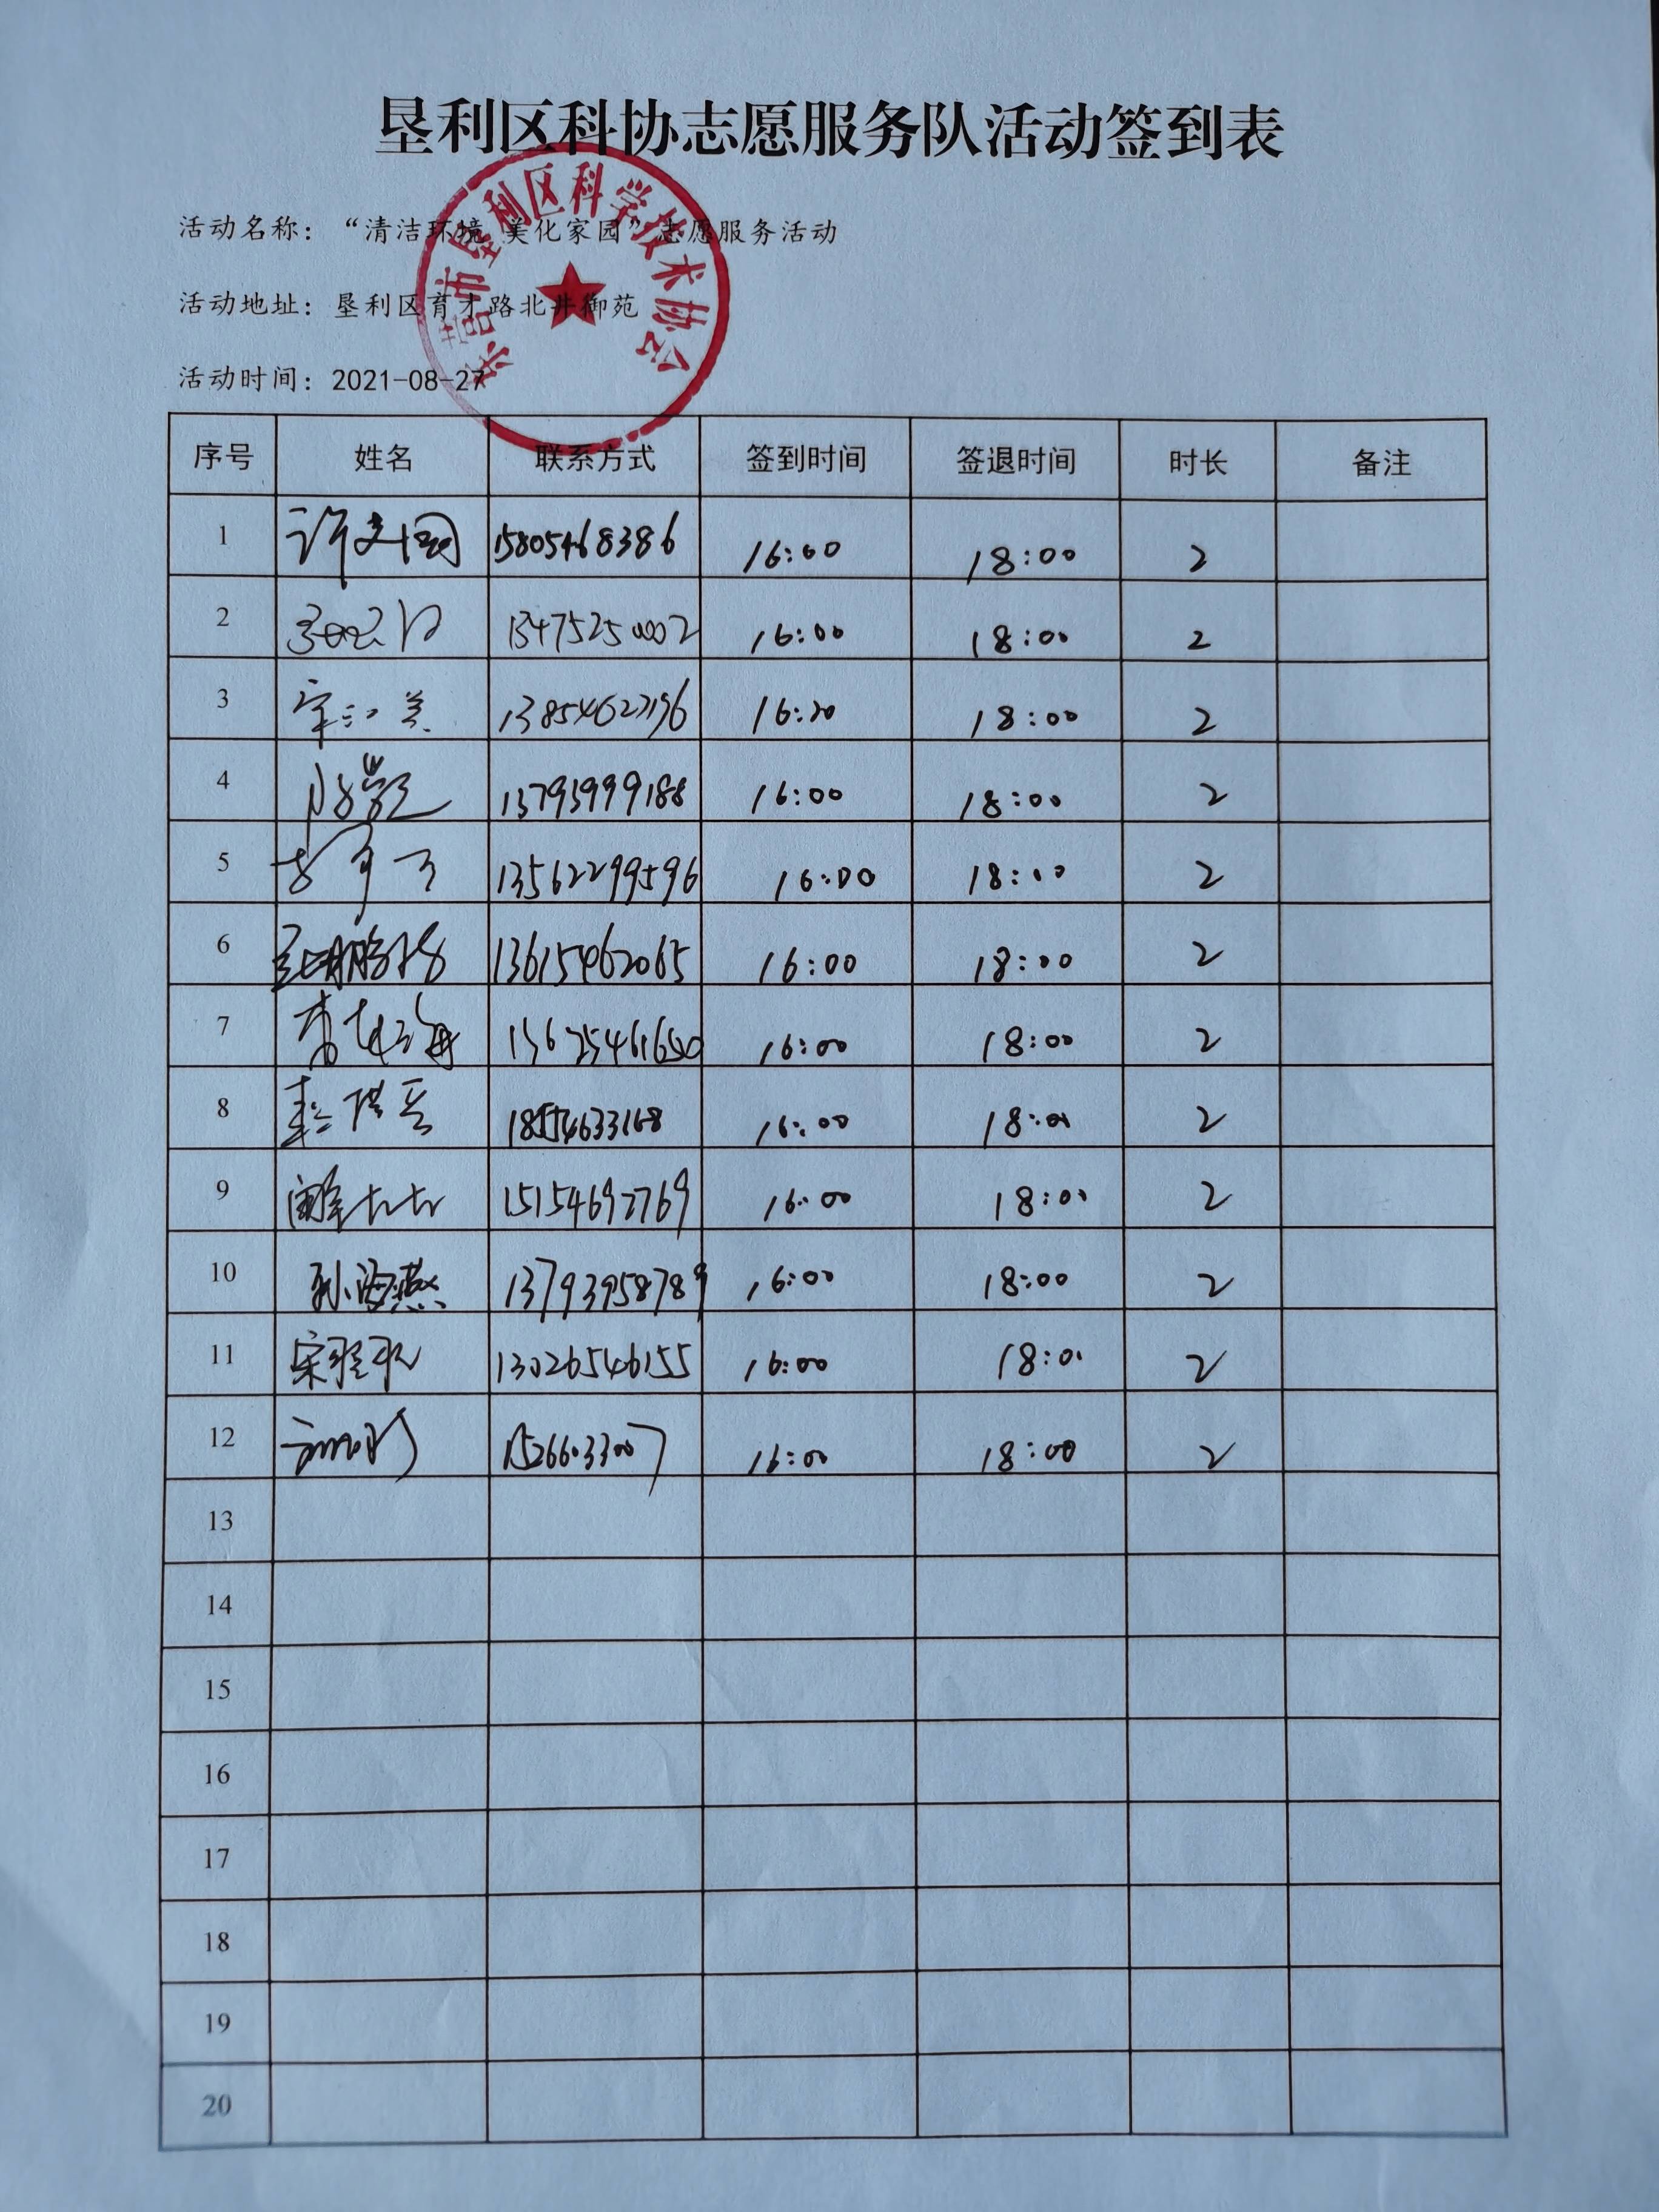 垦利区科协志愿服务队活动签到表
活动名称：“清洁环境 美化家园”志愿服务活动
活动地址：垦利区育才路北井御苑
活动时间：2021-08-27
东营市垦利区科学技术协会
序号 姓名 联系方式 签到时间 签退时间 时长 备注
1 许建国 15805468386 16:00 18:00 2
2 13475250002 16:00 18:00 2
3 16:20 18:00 2
4 13793999188 16:00 18:00 2
5 13562299596 16:00 18:00 2
6 13615462065 16:00 18:00 2
7 16:00 18:00 2
8 18554633168 16:00 18:00 2
9 15154692769 16:00 18:00 2
10 孙海燕 13793958789 16:00 18:00 2
11 13026546155 16:00 18:00 2
12 15266033007 16:00 18:00 2
13
14
15
16
17
18
19
20